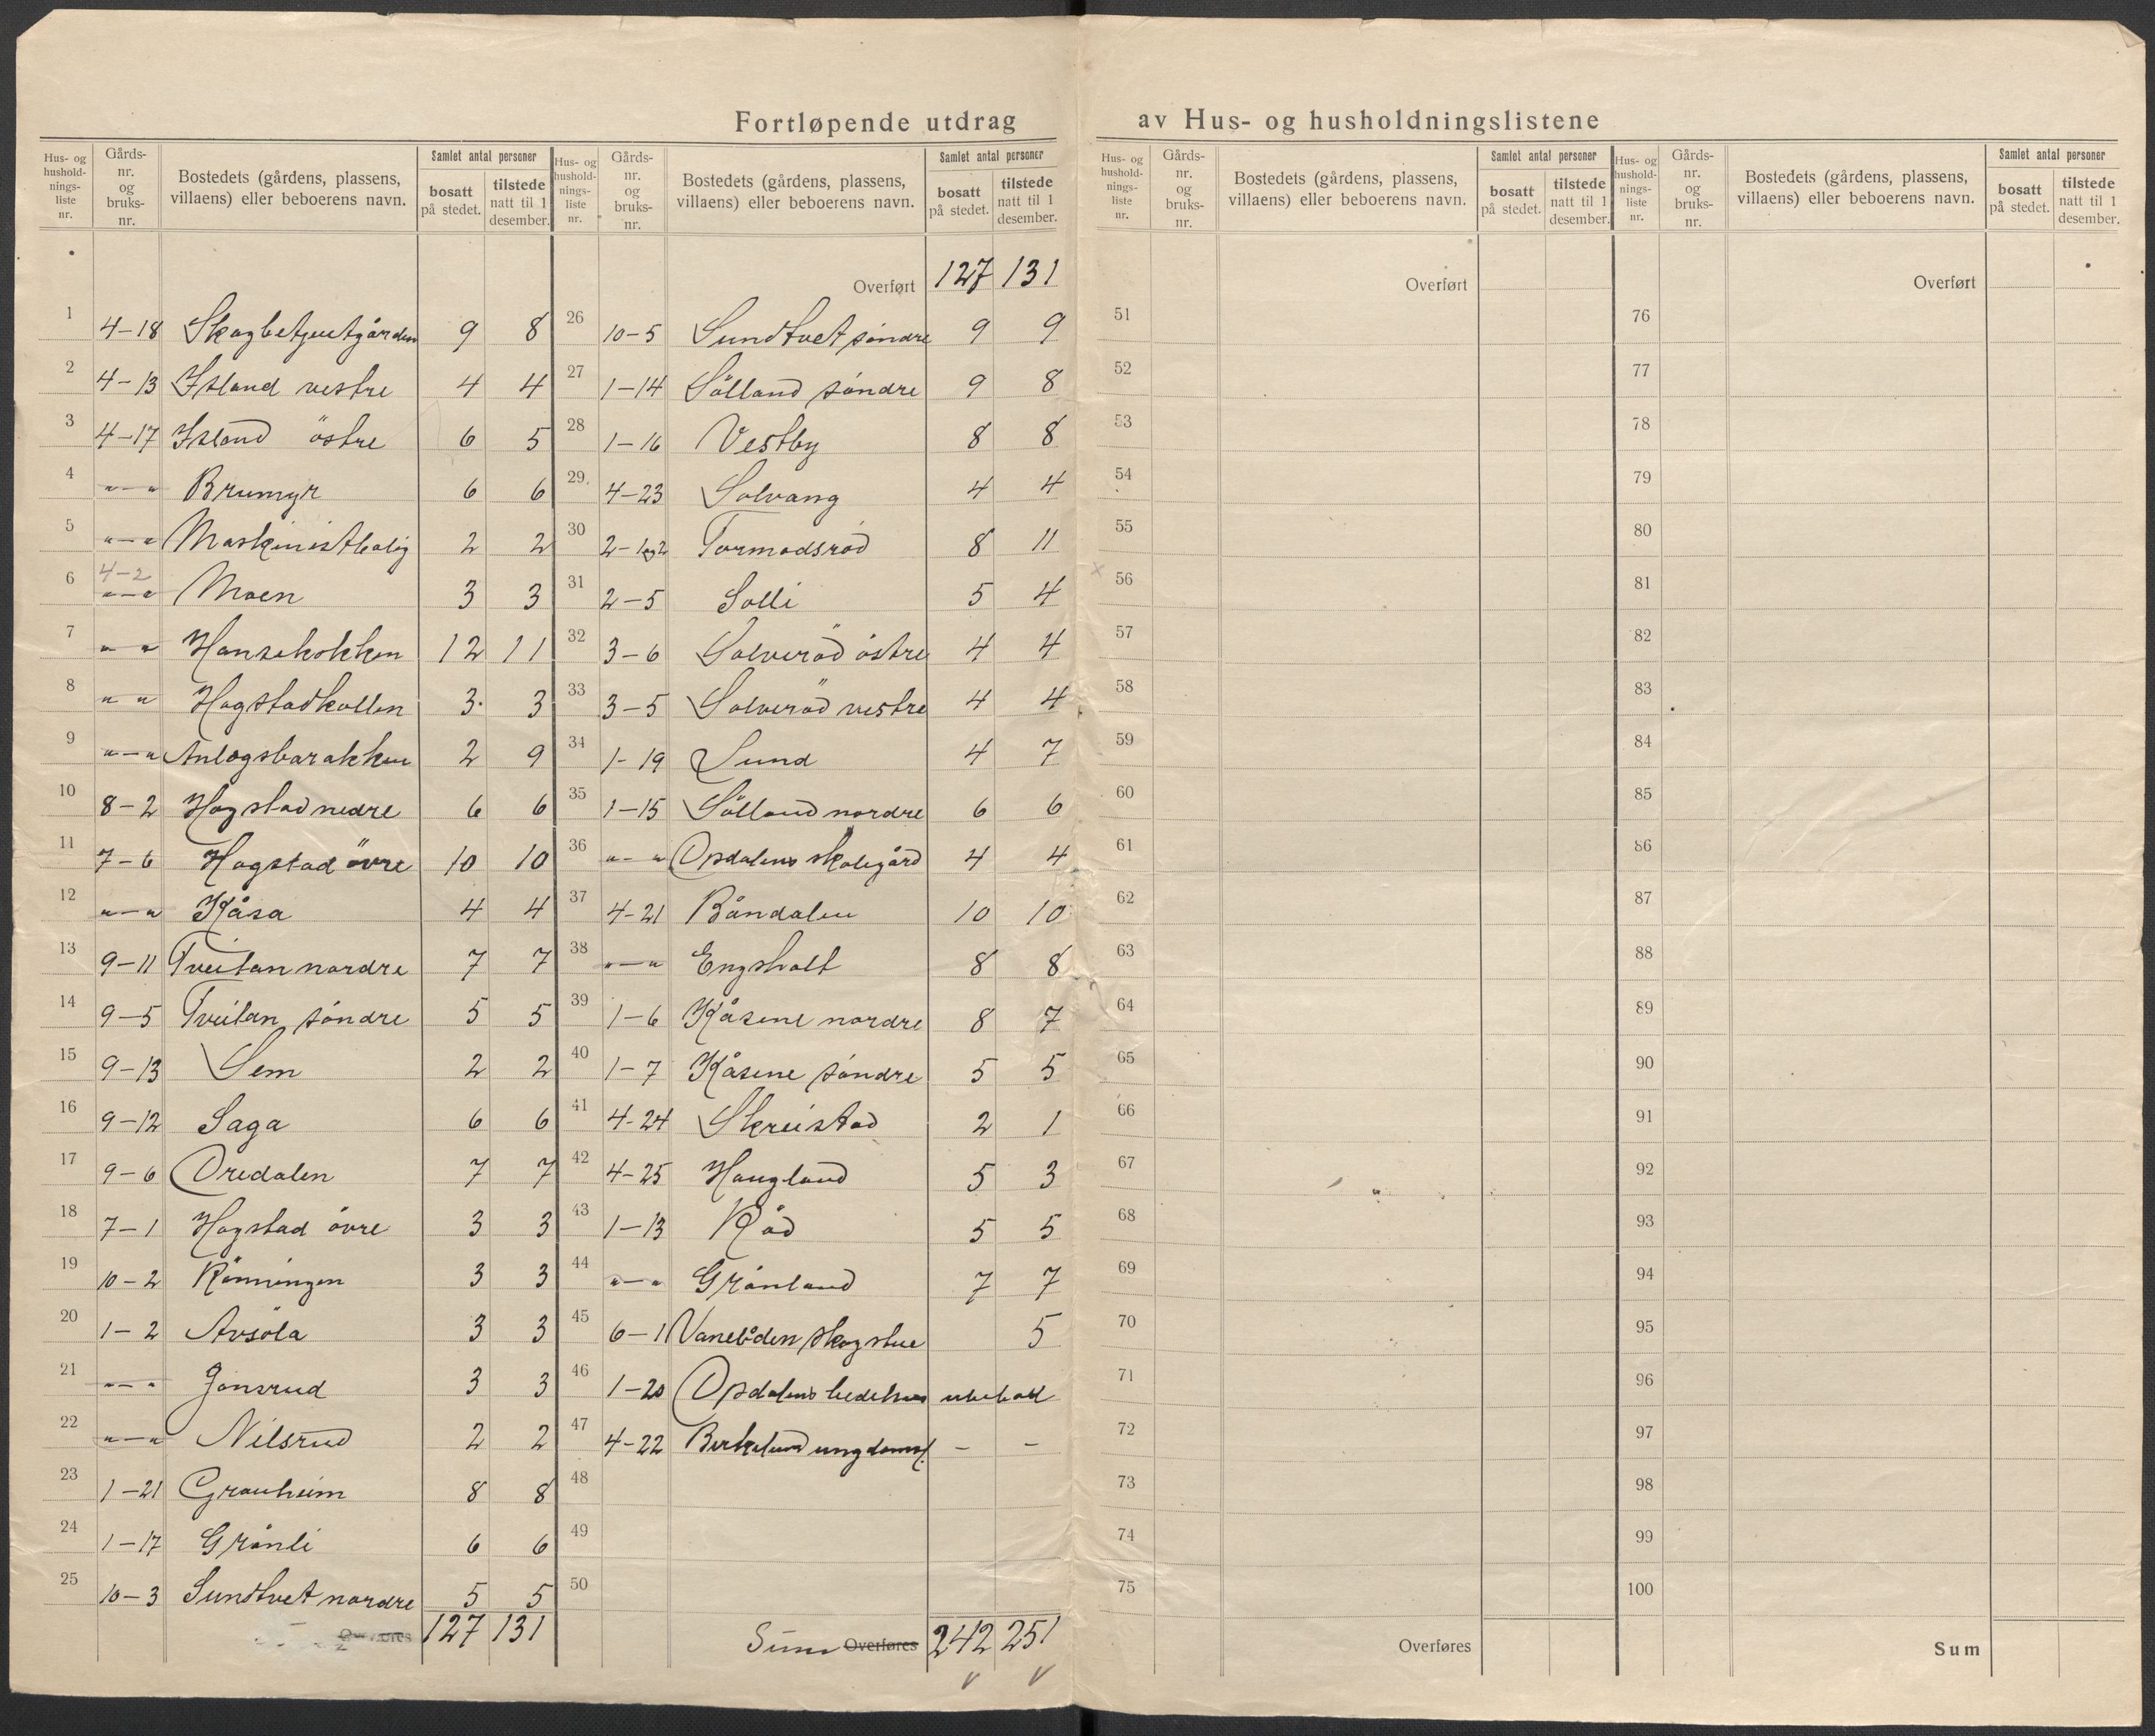 Fortløpende utdrag av Hus- og husholdningslistene
Hus- og hushold-nings-liste nr. Gårds-nr. og bruks-nr. Bostedets (gårdens, plassens, villaens) eller beboerens navn. Samlet antal personer bosatt på stedet. tilstede natt til 1 desember.
1 4-18 Skogbetjentgården 9 8
2 4-13 Island vestre 4 4
3 4-17 Island östre 6 5
4 "-" Brumyr 6 6
5 "-" Maskinistbolig 2 2
6 4-2 "-" Moen 3 3
7 " " Hansekokken 12 11
8 " " Hogstadkollen 3 3
9 "-" Anlogsbarakken 2 9
10 8-2 Hogstad nedre 6 6
11 7-6 Hogstad övre 10 10
12 "-" Kåsa 4 4
13 9-11 Tveitan nordre 7 7
14 9-5 Tveitan söndre 5 5
15 9-13 Sem 2 2
16 9-12 Saga 6 6
17 9-6 Oredalen 7 7
18 7-1 Hogstad övre 3 3
19 10-2 Rönningen 3 3
20 1-2 Avsöla 3 3
21 "-" Jonsrud 3 3
22 "-" Nilsrud 2 2
23 1-21 Granheim 8 8
24 1-17 Grönli 6 6
25 10-3 Sundtvet nordre 5 5
Overføres 127 131
Hus- og hushold-nings-liste nr. Gårds-nr. og bruks-nr. Bostedets (gårdens, plassens, villaens) eller beboerens navn. Samlet antal personer bosatt på stedet. tilstede natt til 1 desember.
Overført 127 131
26 10-5 Sundtvet söndre 9 9
27 1-14 Sölland söndre 9 8
28 1-16 Vestby 8 8
29 4-23 Solvang 4 4
30 2-1og2 Tormodsröd 8 11
31 2-5 Solli 5 4
32 3-6 Solveröd östre 4 4
33 3-5 Solveröd vestre 4 4
34 1-19 Lund 4 7
35 1-15 Sölland nordre 6 6
36 "-" Opdalens skolegård 4 4
37 4-21 Båndalen 10 10
38 "-" Engsholt 8 8
39 1-6 Kåsene nordre 8 7
40 1-7 Kåsene söndre 5 5
41 4-24 Skreistad 2 1
42 4-25 Haugland 5 3
43 1-13 Röd 5 5
44 "-" Grönland 7 7
45 6-1 Vanebuden skogstue 5
46 1-20 Opdalens bedehus ubebodd
47 4-22 Birkelund ungdomsl. - -
48
49
50
Sum Overføres 242 251
V V
Hus- og hushold-nings-liste nr. Gårds-nr. og bruks-nr. Bostedets (gårdens, plassens, villaens) eller beboerens navn. Samlet antal personer bosatt på stedet. tilstede natt til 1 desember.
Overført
51
52
53
54
55
x 56
57
58
59
60
61
62
63
64
65
66
67
68
69
70
71
72
73
74
75
Overføres
Hus- og hushold-nings-liste nr. Gårds-nr. og bruks-nr. Bostedets (gårdens, plassens, villaens) eller beboerens navn. Samlet antal personer bosatt på stedet. tilstede natt til 1 desember.
Overført
76
77
78
79
80
81
82
83
84
85
86
87
88
89
90
91
92
93
94
95
96
97
98
99
100
Sum